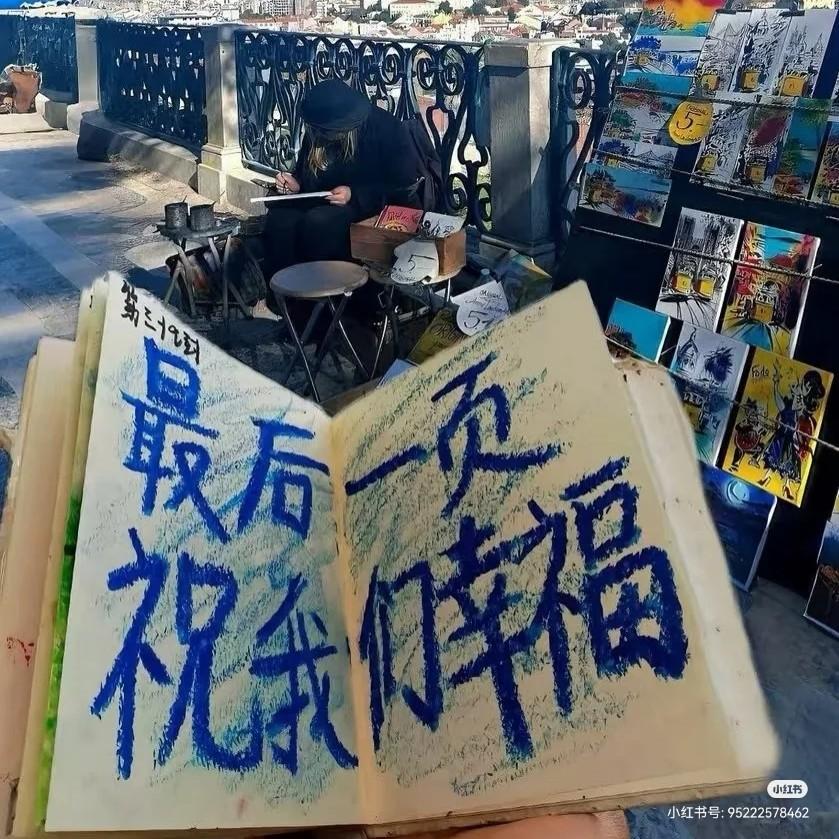 第三十九封
最后一页
祝我们幸福
5
5
5
Fado
小红书
小红书号: 95222578462